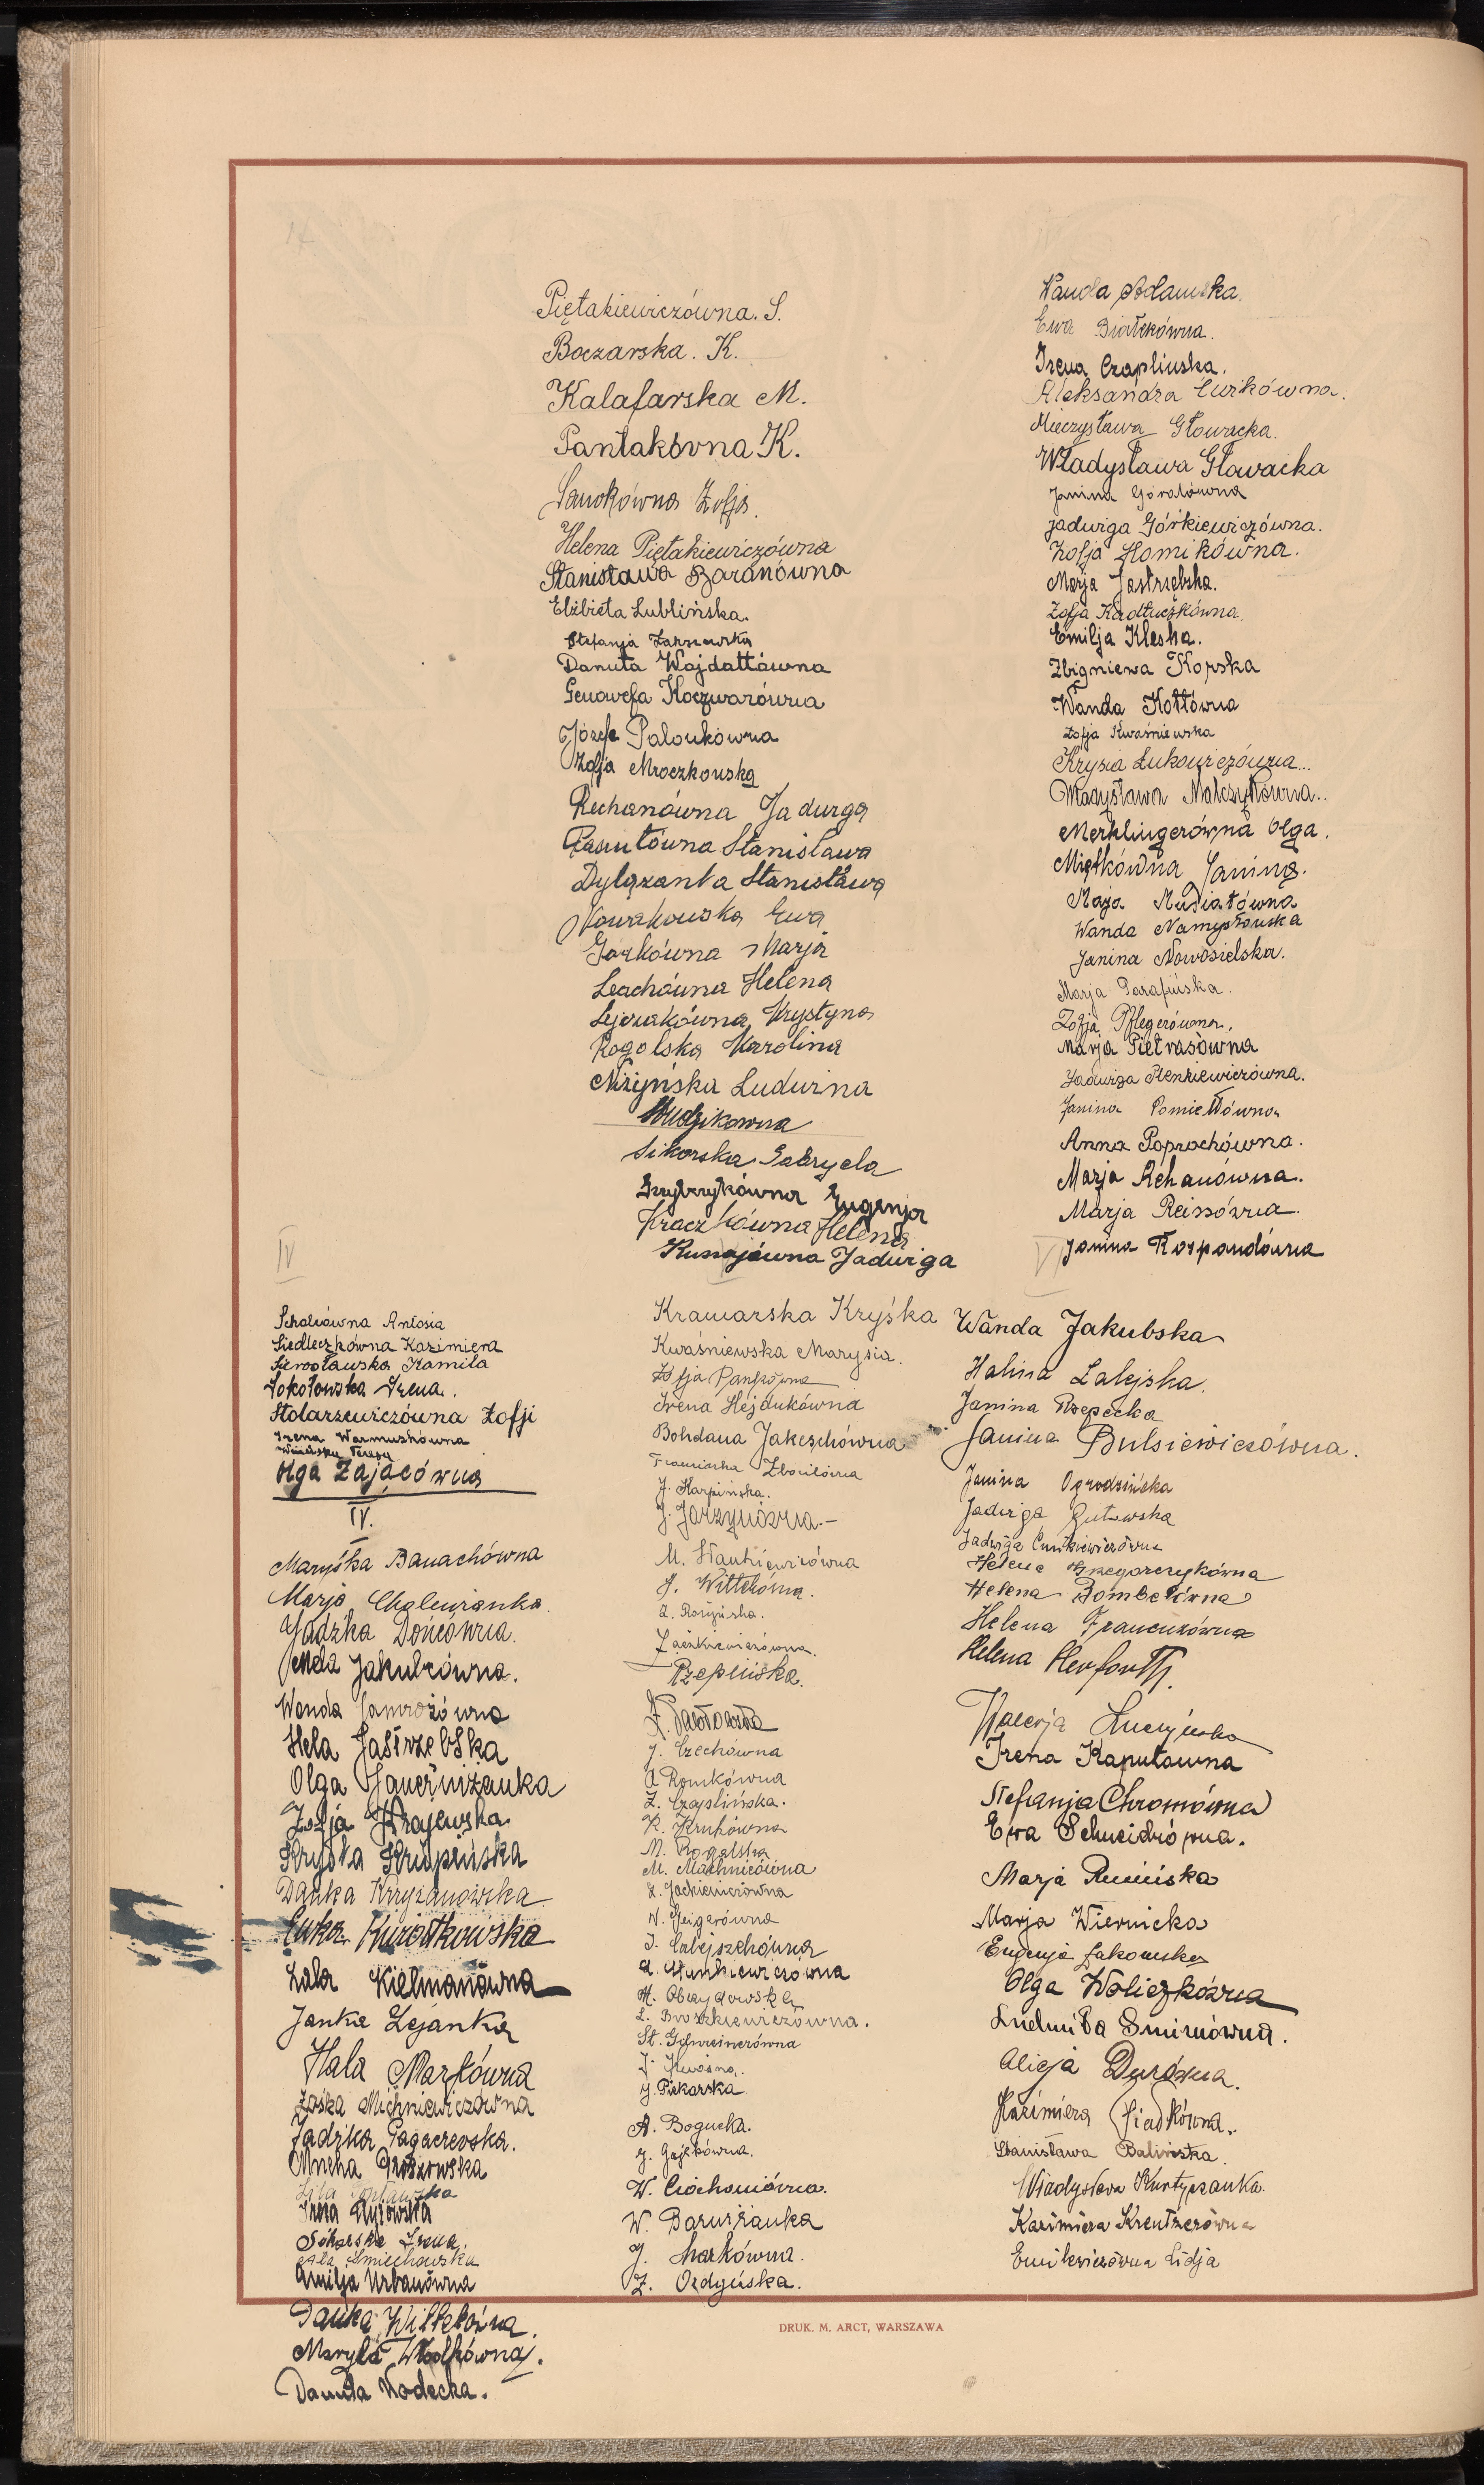 Piętakiewiczówna. S.
Boczarska. K.
Kalafarska M.
Pantakówna K.
Sanokówna Zofja.
Helena Piętakiewiczówna
Stanisława Baranówna
Elżbieta Lublińska.
Stefanja
Danuta Wojdattówna
Genowefa Koczwarówna
Józefa Palonkówna
Zofja Mroczkowska
Rechanówna Jadwiga
Stanisława
Dylązanka Stanisława
Nowakowska Ewa
Gorkówna Marja
Lechówna Helena
Krystyna
Rogolska Karolina
Niżyńska Ludwina
Sikorska Gabryela
Grzybczykówna Eugenja
Kraczkówna Helena
Jadwiga
Wanda Adamska
Ewa Białkówna.
Irena Czaplińska.
Aleksandra Ćwikówna.
Mieczysława Głowacka.
Władysława Głowacka
Janina Góralówna
Jadwiga Górkiewiczówna.
Zofja Homikówna.
Marja Jastrzębska.
Zofja Kadłuczkówna
Emilja Kleska.
Zbigniewa Kopska
Wanda Kottówna
Zofja Kwaśniewska
Krysia Łukowiczówna...
Władysława Malczykówna..
Merklingerówna Olga.
Miętkówna Janina.
Maja Musiałówna
Wanda Namysłowska
Janina Nowosielska.
Marja Parafińska.
Zofja Pflegerówna,
Marja Pietrasówna
Jadwiga Plenkiewiczówna.
Janina
Anna Poprochówna.
Marja Rehanówna.
Marja Reissówna.
Janina Rospondówna
IV
VI
Antosia
Siedleczkówna Kazimiera
Sierosławska Kamila
Sokołowska Irena.
Stolarzewiczówna Zofji
Irena Warmuzkówna
Olga Zającówna
IV.
Maryśka Banachówna
Marja Cholewianka.
Jadzka Dońcówna.
Jakubcówna.
Wanda Jamrozówna
Hela Jastrzebska
Olga
Zofja Krajewska
Kryśka Krupińska
Danka Krzyżanowska
Ewka Kurotkowska
Lala Kielmanówna
Janka Lejanka
Hala Markówna
Zośka Michniewiczówna
Jadzka Pagaczewska.
Irena Ryżowska
Irena.
Śmiechowska
Amilja Urbanówna
Danka Wittekówna.
Maryla Wlodkówna.
Danuta Wodecka.
Kramarska Kryśka
Kwaśniewska Marysia.
Zofja Pankówna
Irena Hejdukówna
Bohdana Jakeschówna
J. Karpińska.
J. Jarzynówna.-
M. Stankiewiczówna
J. Wittekówna.
Zaczkiewiczówna.
Rzepińska.
J. Czechówna
A Romkówna
Z. Czaplińska.
K. Krukówna
M. Rogalska
M. Machnicówna
Z. Jackiewiczówna
W. Geigerówna
A. Stankiewiczówna
M. Obrzydowska
L. Broszkiewiczówna.
St. Gschweinerówna
J. Kwaśna.
J. Piekarska
A. Bogucka.
J. Gajkówna.
W. Ciochoniówna.
W. Barwiżanka
J. Markówna.
Z. Ordyńska.
Wanda Jakubska
Halina Zalejska.
Janina Rzepecka
Janina Bulsiewiczówna.
Janina Ogrodzińska
Jadwiga Gutowska
Jadwiga Ćwikiewiczówna
Helena Grzegorczykówna
Helena Bombelówna
Helena Francuzówna
Helena Herforth.
Walerja
Irena Kaputówna
Stefanja Chromówna
Ewa Schneidrówna.
Marja Rumińska
Marja Wiernicka
Eugenja Żakowska
Olga Woliczkówna
Ludmiła Smirnówna.
Alicja Durówna.
Kazimiera Siadkówna.
Stanisława Balińska.
Władysława Kurtyczanka.
Kazimiera Kreutzerówna
Emilewiczówna Lidja
DRUK. M. ARCT, WARSZAWA